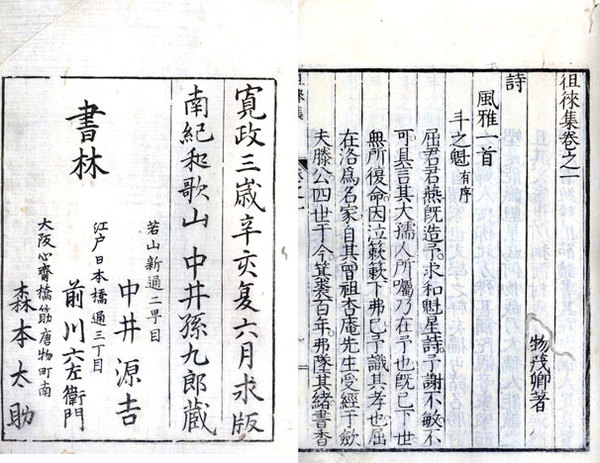 徂徠集卷之一
物茂卿著
詩
風雅一首
斗之魁 有序
屈君君燕既造予求和魁星詩予謝不敏不
可具言其大孺人所囑乃在予也既已下世
無所復命因泣簌簌下弗已予識其孝也屈
在洛爲名家自其曾祖杏庵先生受經于歛
夫滕公四世于今箕裘百年弗隊其緒書香
徂徠集
卷之一
寛政三歳辛亥夏六月求版
南紀和歌山 中井孫九郎藏
書林
若山新通二丁目
中井源吉
江戸日本橋通三丁目
前川六左衛門
大阪心齋橋筋唐物町南
森本太助